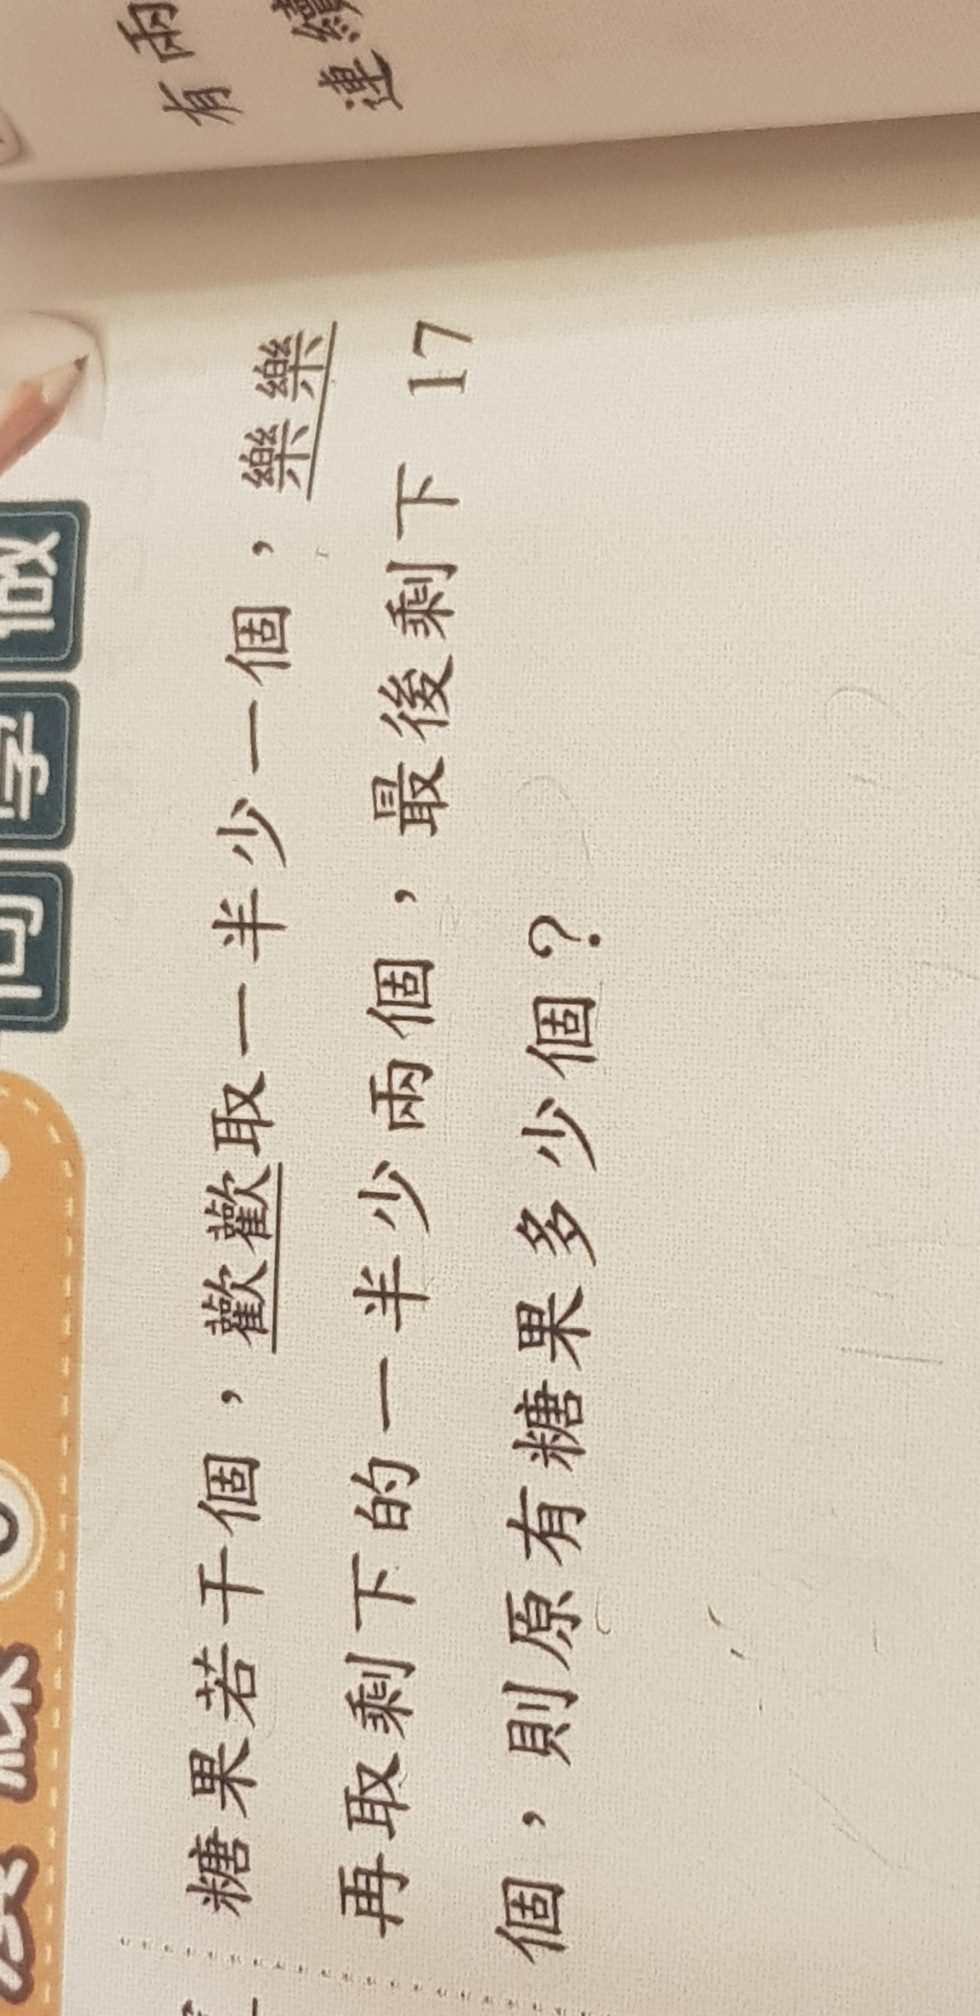 同學做
糖果若干個，歡歡取一半少一個，樂樂
再取剩下的一半少兩個，最後剩下 17
個，則原有糖果多少個？
有兩
連續